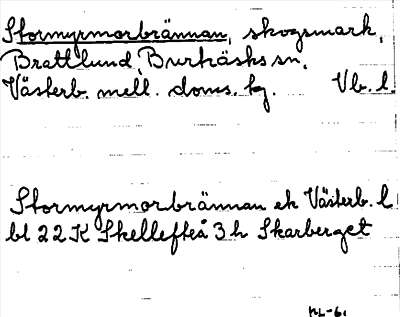 Stormyrmorbrännan, skogsmark,
Brattlund, Burträsks sn.
Västerb. mell. doms. hg. Vb. l.
Stormyrmorbrännan ek Västerb. l
bl 22 K Skellefteå 3 h Skarberget